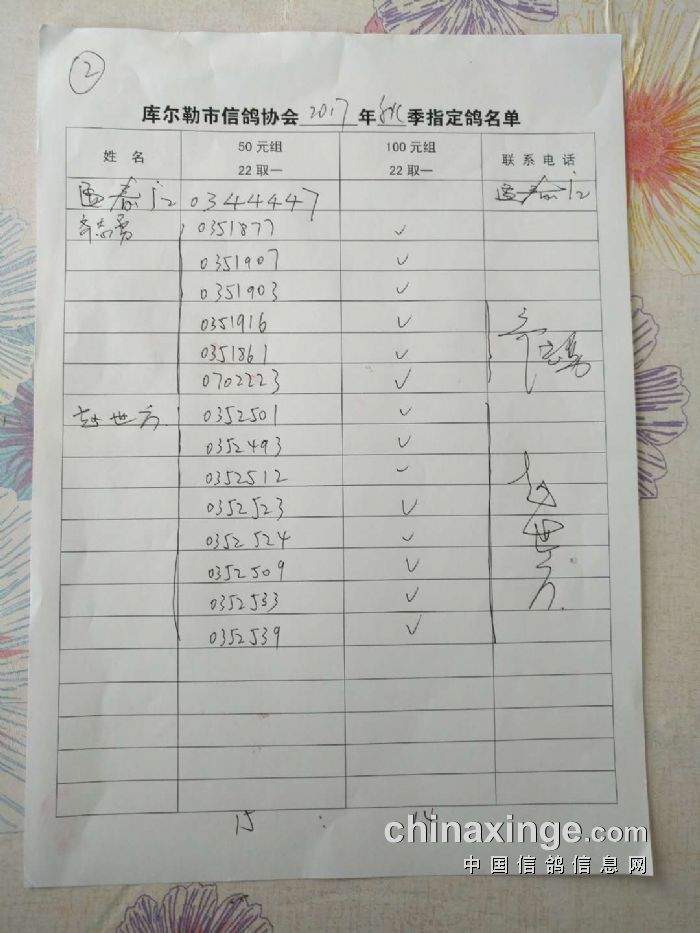 2
库尔勒市信鸽协会 2017 年 秋 季指定鸽名单
姓 名 50元组 22取一 100元组 22取一 联系电话
0344447
0351877 ✓
0351907 ✓
0351903 ✓
0351916 ✓
0351861 ✓
0702223 ✓
赵世方 0352501 ✓
0352493 ✓
0352512 ✓
0352523 ✓
0352524 ✓
0352509 ✓
0352533 ✓
0352539 ✓
赵世方
15 14
chinaxinge.com
中国信鸽信息网